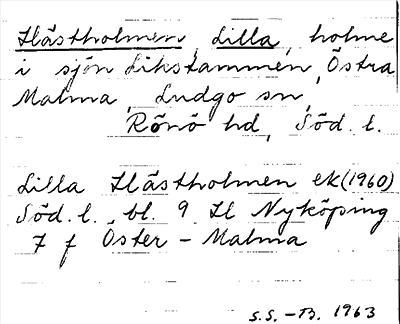 Hästholmen, Lilla, holme
i sjön Likstammen, Östra
Malma, Ludgo sn,
Rönö hd, Söd. l.
Lilla Hästholmen ek(1960)
Söd. l. bl. 9 H Nyköping
7 f Öster-Malma
S.S.-B. 1963